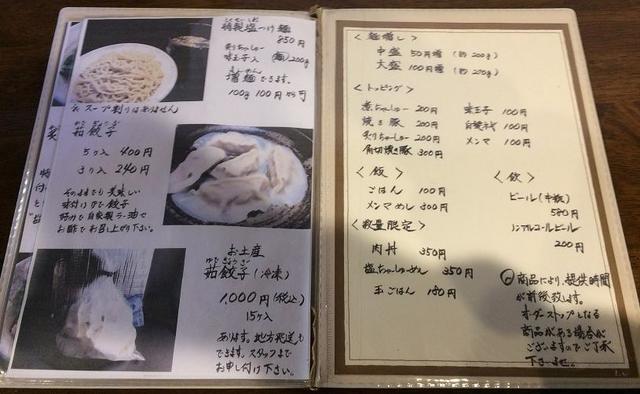 特製塩つけ麺
850円
炙りちゃーしゅー
味玉子入 麺200g
増麺できます。
100g 100円増
スープ割りはありません
ゆで ぎょうざ
茹餃子
5ケ入 400円
3ケ入 240円
そのままでも美味しい
味付けゆで餃子
好みで自家製ラー油や
お酢でお召し上がり下さい。
お土産
ゆで ぎょうざ
茹餃子(冷凍)
1,000円(税込)
15ケ入
あります。地方発送も
できます。スタッフまで
お申し付け下さい。
<麺増し>
中盛 50円増 (約200g)
大盛 100円増 (約270g)
<トッピング>
煮ちゃしゅー 200円
焼き豚 200円
炙りちゃしゅー 200円
角切焼き豚 300円
味玉子 100円
白髪ネギ 100円
メンマ 100円
<飯>
ごはん 100円
メンマめし 300円
<飲>
ビール(中瓶)
580円
ノンアルコールビール
200円
<数量限定>
肉丼 350円
塩ちゃしゅめし 350円
玉ごはん 180円
商品により、提供時間
が前後致します。
オーダーストップしなる
商品がある場合が
ございますのでご了承
下さいませ。